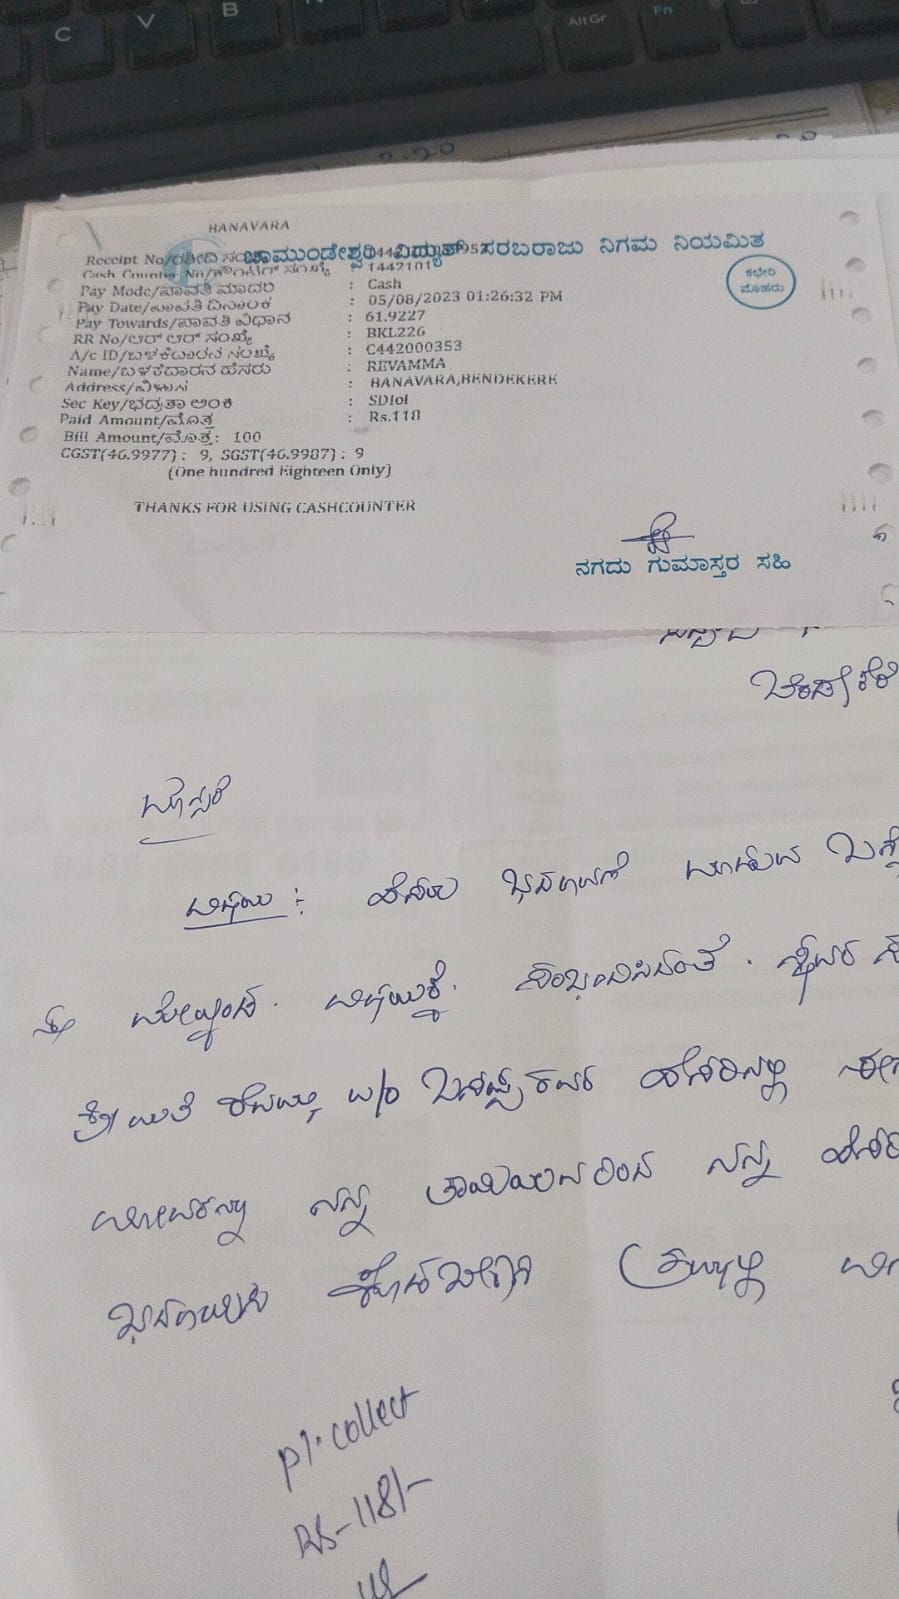 C V B AltGr Fn
BANAVARA
ಚಾಮುಂಡೇಶ್ವರಿ ವಿದ್ಯುತ್ ಸರಬರಾಜು ನಿಗಮ ನಿಯಮಿತ
Receipt No/ರಶೀದಿ
Cash Counter No/ಕೌಂಟರ್ ಸಂಖ್ಯೆ : 1442101
ಕಛೇರಿ
ಮೊಹರು
Pay Mode/ಪಾವತಿ ಮಾದರಿ : Cash
Pay Date/ಪಾವತಿ ದಿನಾಂಕ : 05/08/2023 01:26:32 PM
Pay Towards/ಪಾವತಿ ವಿಧಾನ : 61.9227
RR No/ಆರ್ ಆರ್ ಸಂಖ್ಯೆ : BKL226
A/c ID/ಬಳಕೆದಾರನ ಸಂಖ್ಯೆ : C442000353
Name/ಬಳಕೆದಾರನ ಹೆಸರು : REVAMMA
Address/ವಿಳಾಸ : BANAVARA,BENDEKERE
Sec Key/ಭದ್ರತಾ ಅಂಕಿ : SDlol
Paid Amount/ಮೊತ್ತ : Rs.118
Bill Amount/ಮೊತ್ತ: 100
CGST(46.9977) : 9, SGST(46.9987) : 9
(One hundred Eighteen Only)
THANKS FOR USING CASHCOUNTER
ನಗದು ಗುಮಾಸ್ತರ ಸಹಿ
ಬೆಂಡೇಕೆರೆ
ಮಾನ್ಯರೆ
ವಿಷಯ : ಹೆಸರು ಬದಲಾವಣೆ ಮಾಡುವ ಬಗ್ಗೆ
ಈ ಮೇಲ್ಕಂಡ ವಿಷಯಕ್ಕೆ ಸಂಬಂಧಿಸಿದಂತೆ .
ಶ್ರೀಮತಿ ರೇವಮ್ಮ w/o ಬಸಪ್ಪ ರವರ ಹೆಸರಿನಲ್ಲಿ
ನನ್ನ ತಾಯಿಯವರಿಂದ ನನ್ನ
pl. collect
Rs-118/-